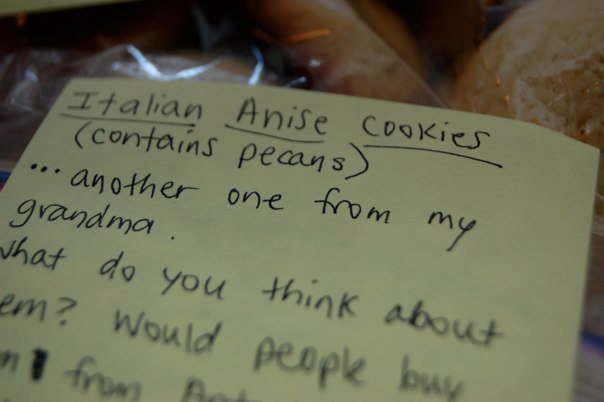 Italian Anise Cookies
(contains pecans)
...another one from my
grandma.
what do you think about
em? Would people buy
from